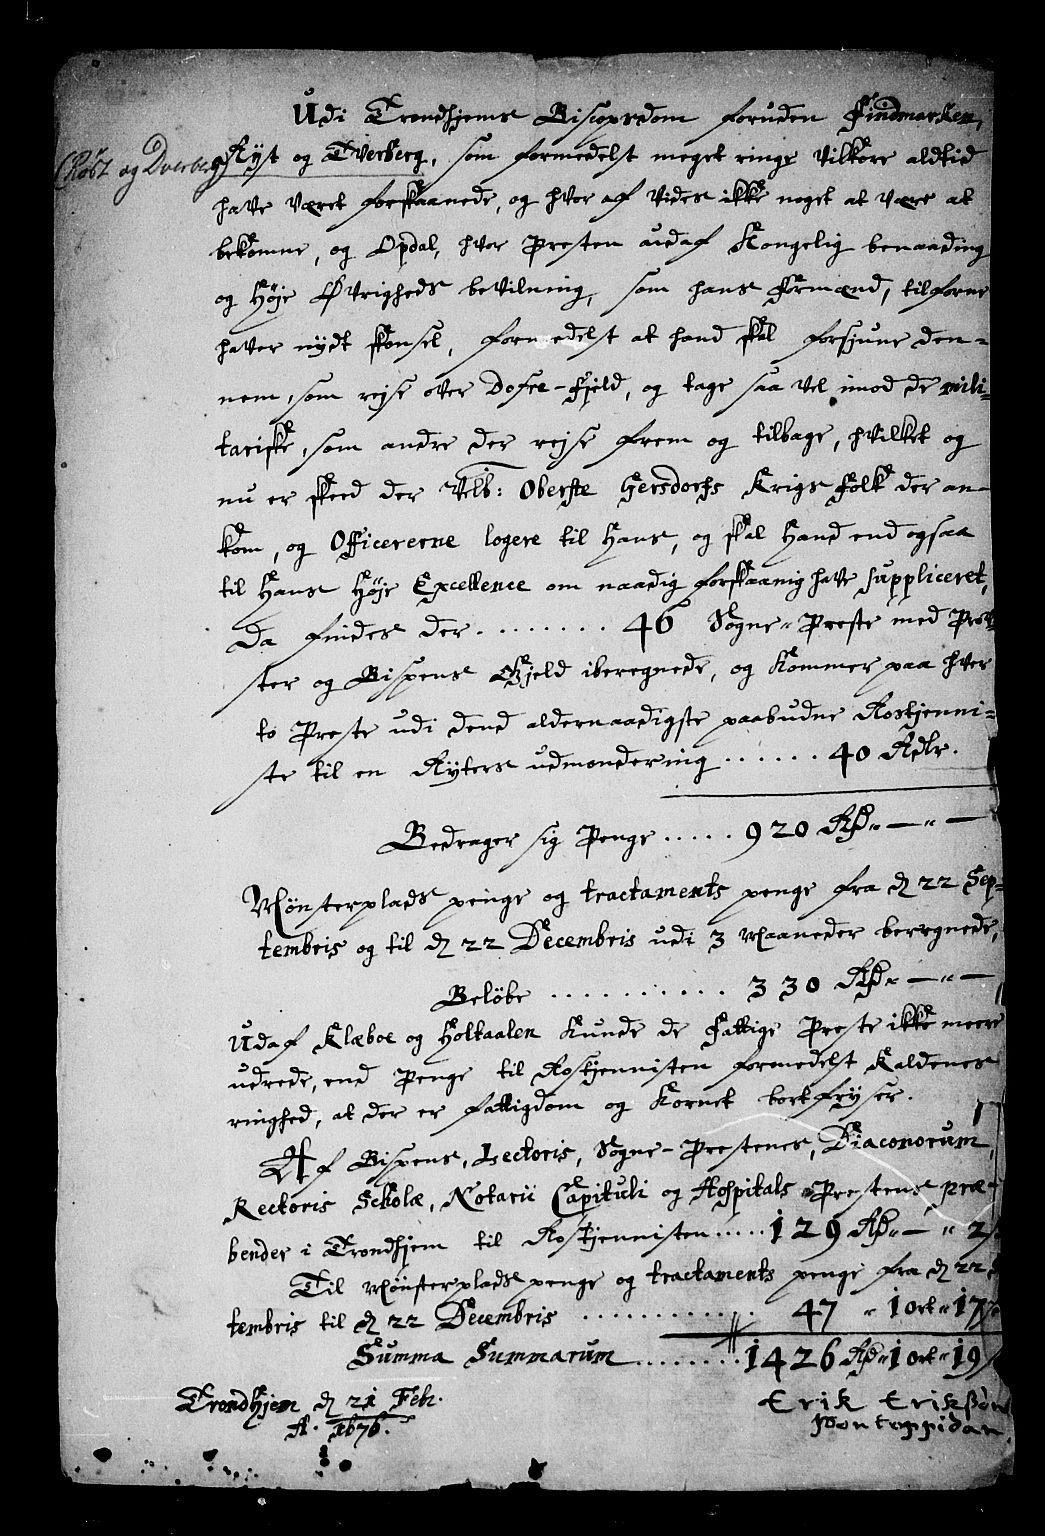 Udi Trondhjems Biscopsdom foruden Findmarken,
(Røst og Dverberg)
Ryst og Tverberg, som formedelst meget ringe vilkore aldtid
have været forskaanede, og hvor af vides ikke noget at være at
bekomme, og Opdal, hvor Presten udaf Kongelig benaading
og Høje Øvrigheds bevilning, som hans Formænd, tilforne
haver nydt skønsel, formedelst at hand skal forsjune den=
nem, som rejse over Dofre-Fjeld, og tage saa vel imod de mili=
tariske, som andre der rejse frem og tilbage, hvilket og
nu er skeed der Velb: Oberste Gersdorfs Krigs folk der an=
kom, og Officererne logere til Hans, og skal Hand end ogsaa
til Hans Høje Excellence om naadig forskaanig have suppliceret,
Da findes der ........ 46 Sogne-Preste med Prov=
ster og Bispens Gjeld iberegnede, og kommer paa hver
to Preste udi dend aldernaadigste paabudne Rostjenni=
ste til en Ryters udmondering ...... 40 Rdlr.
Bedrager sig Penge ..... 920 Rd „ — „ —
Mønsterplads penge og tractaments penge fra d 22 Sep=
tembris og til d 22 Decembris udi 3 Maaneder beregnede,
Beløbe ........... 330 Rd „ — „ —
Udaf Klæboe og Holtaalen kunde de Fattige Preste ikke meere
udrede, end Penge til Rostjennisten formedelst Kaldenes
ringhed, at der er fattigdom og Kornet bortfryser.
Af Bispens, Lectoris, Sogne-Prestenes, Diaconorum,
Rectoris Scholæ, Notarii Capituli og Hospitals Prestens præ=
bender i Trondhjem til Rostjennisten ..... 129 Rd „ — „ 2
Til Mønsterplads penge og tractaments penge fra d 22 S
tembris til d 22 Decembris ............. 47 „ 1 Ort „ 17
Summa Summarum ........ 1426 Rd „ 1 Ort „ 19
Trondhjem d 21 Febr.
A. 1676.
Erik Erikßøn
Pontoppidan